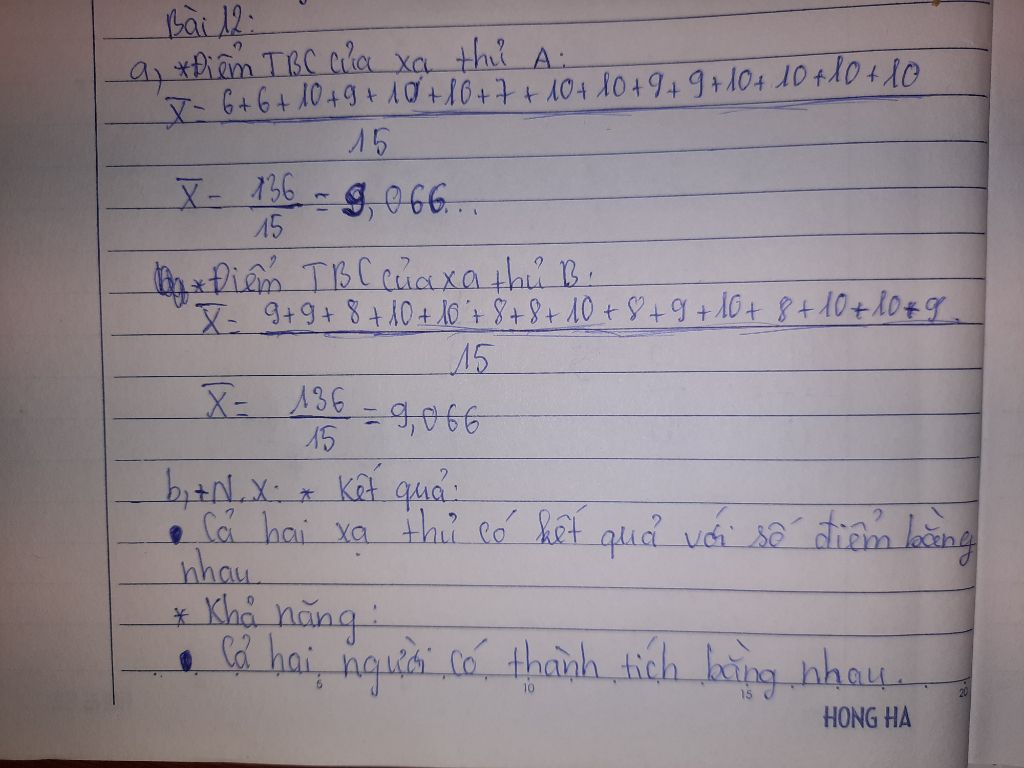 Bài 12:
a, *Điểm TBC của xạ thủ A:
X̅ = 6+6+10+9+10+10+7+10+10+9+9+10+10+10+10
15
X̅ = 136/15 = 9,066...
*Điểm TBC của xạ thủ B:
X̅ = 9+9+8+10+10+8+8+10+8+9+10+8+10+10+9
15
X̅ = 136/15 = 9,066
b, +N.X: * Kết quả:
• Cả hai xạ thủ có kết quả với số điểm bằng
nhau
* Khả năng:
• Cả hai người có thành tích bằng nhau.
5 10 15 20
HONG HA